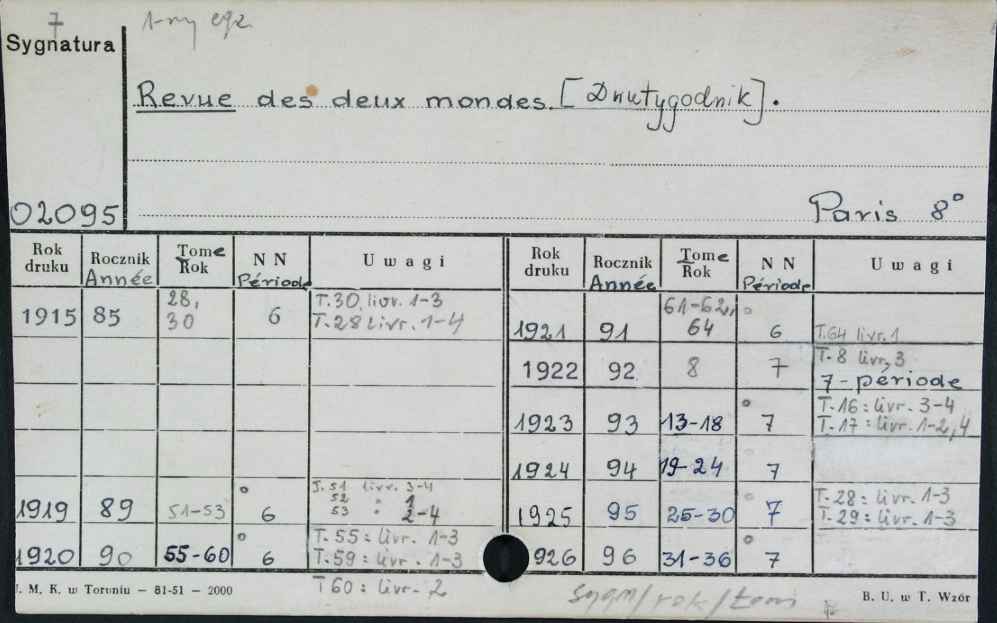 7 1-ny egz
Sygnatura
Revue des deux mondes. [Dwutygodnik].
02095
Paris 8°
Rok druku Rocznik Année Tome Rok NN Période Uwagi
1915 85 28, 30 6 T.30, livr. 1-3
T.28 livr. 1-4
1919 89 51-53 ° 6 T.51 livr. 3-4
52 " 1
53 " 2-4
1920 90 55-60 ° 6 T.55: livr. 1-3
T.59: livr. 1-3
T60: livr. 2
Rok druku Rocznik Année Tome Rok NN Période Uwagi
1921 91 61-62, 64 ° 6 T.64 livr. 1
1922 92 8 7 T-8 livr. 3
7-période
1923 93 13-18 ° 7 T-16: livr. 3-4
T-17: livr. 1-2, 4
1924 94 19-24 7
1925 95 25-30 ° 7 T-28: livr. 1-3
T-29: livr. 1-3
926 96 31-36 ° 7
J. M. K. w Toruniu — 81-51 — 2000
sygn/rok/tom
B. U. w T. Wzór